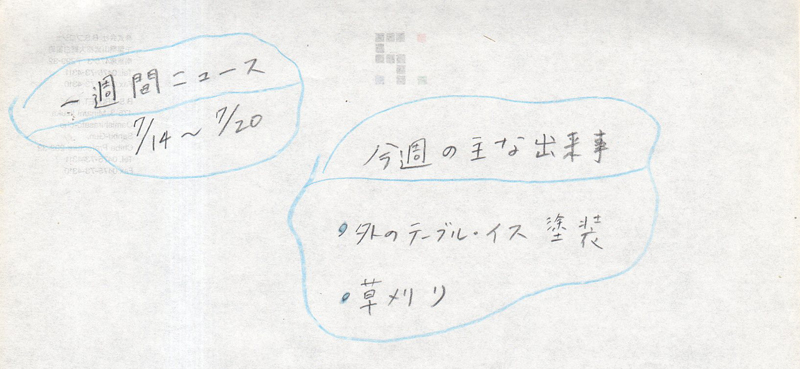 一週間ニュース
7/14〜7/20
今週の主な出来事
・外のテーブル・イス 塗装
・草刈り